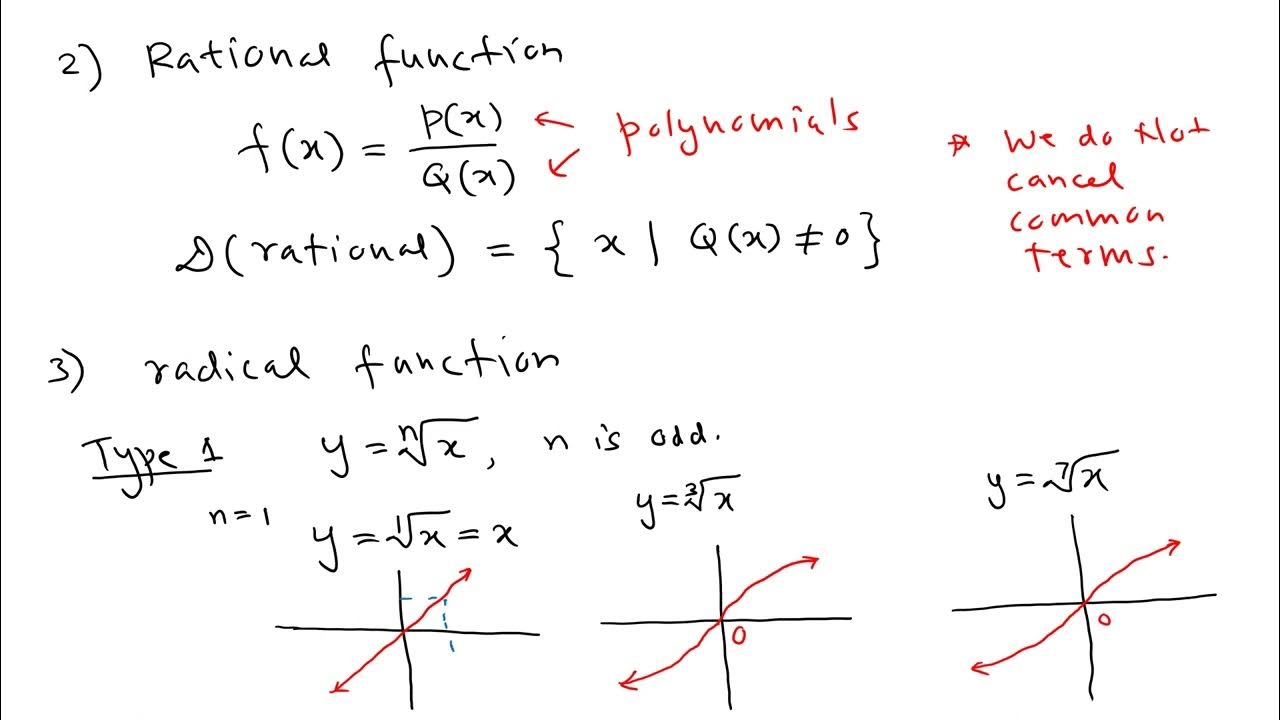 2) Rational function
f(x) = P(x)/Q(x) ← ↙ polynomials
* We do Not
cancel
common
terms.
D(rational) = { x | Q(x) ≠ 0 }
3) radical function
Type 1 y = ⁿ√x, n is odd.
n = 1 y = ¹√x = x
y = ³√x
y = ⁷√x
0
0